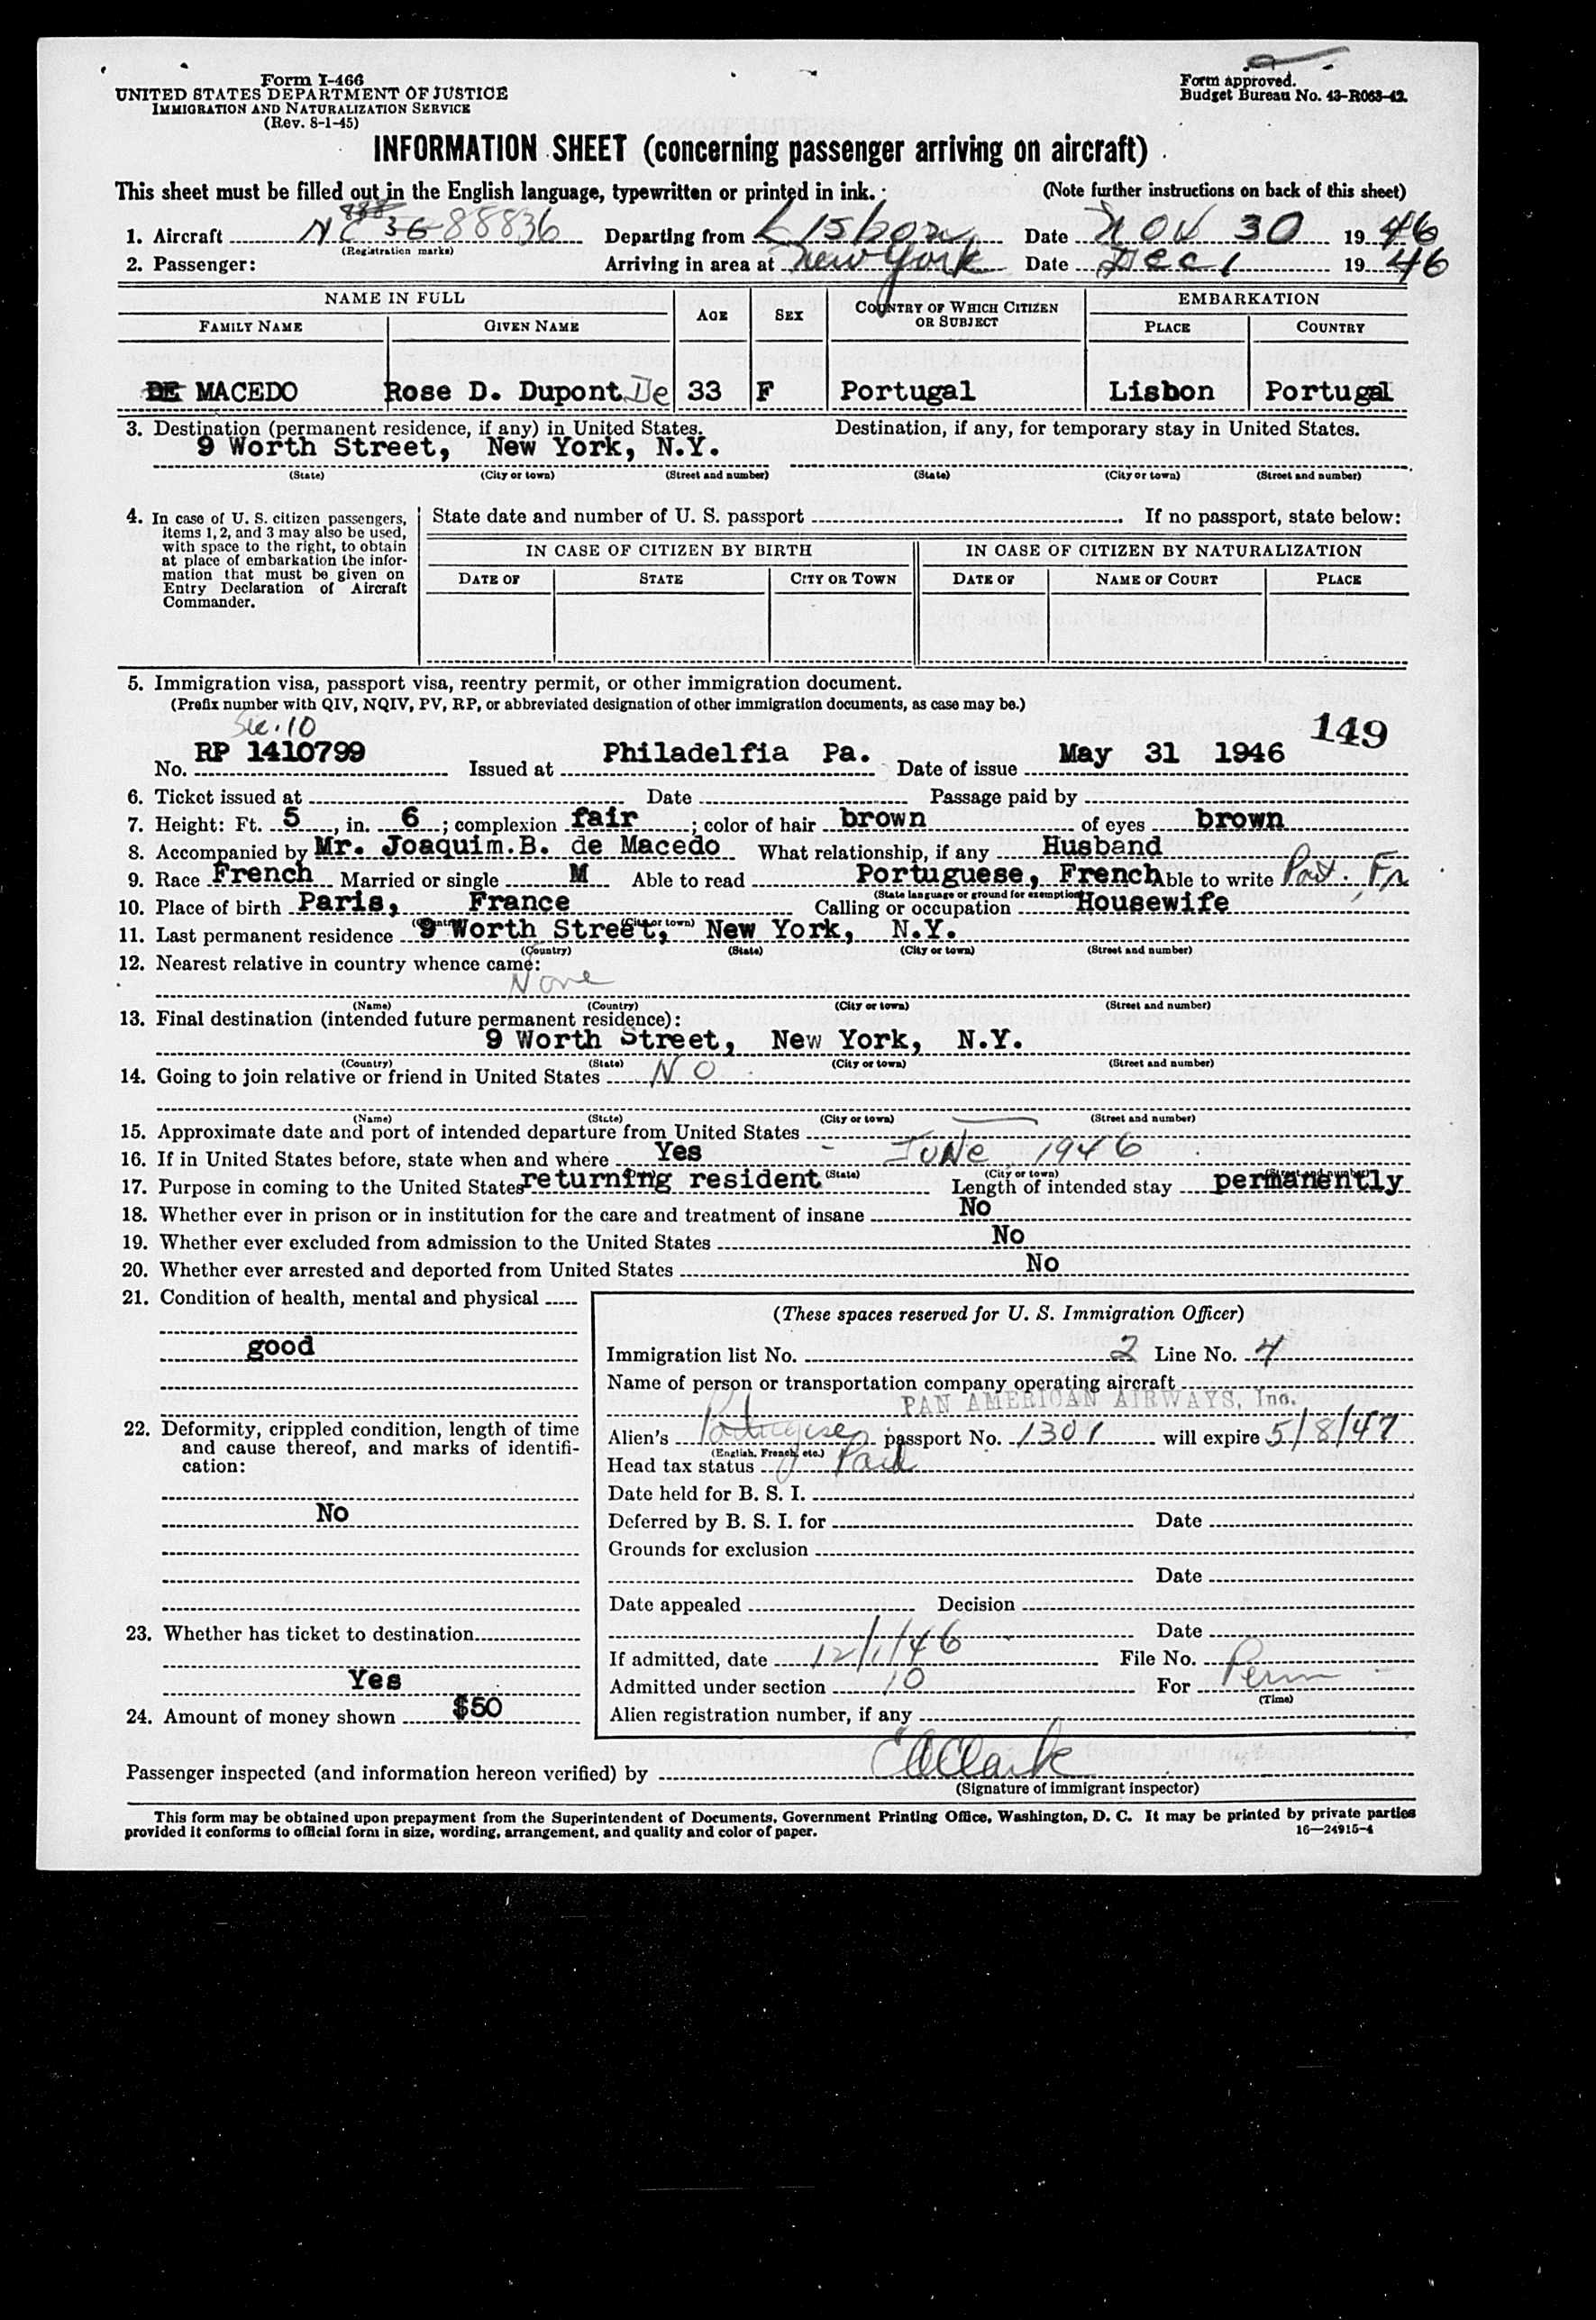 Form I-466
UNITED STATES DEPARTMENT OF JUSTICE
IMMIGRATION AND NATURALIZATION SERVICE
(Rev. 8-1-45)
Form approved.
Budget Bureau No. 43-R063-42.
INFORMATION SHEET (concerning passenger arriving on aircraft)
This sheet must be filled out in the English language, typewritten or printed in ink. (Note further instructions on back of this sheet)
1. Aircraft NC 88836 Departing from Lisbon Date Nov 30 1946
(Registration marks)
2. Passenger: Arriving in area at New York Date Dec 1 1946
NAME IN FULL AGE SEX COUNTRY OF WHICH CITIZEN OR SUBJECT EMBARKATION
FAMILY NAME GIVEN NAME PLACE COUNTRY
DE MACEDO Rose D. Dupont De 33 F Portugal Lisbon Portugal
3. Destination (permanent residence, if any) in United States. Destination, if any, for temporary stay in United States.
9 Worth Street, New York, N.Y.
(State) (City or town) (Street and number) (State) (City or town) (Street and number)
4. In case of U. S. citizen passengers, items 1, 2, and 3 may also be used, with space to the right, to obtain at place of embarkation the information that must be given on Entry Declaration of Aircraft Commander.
State date and number of U. S. passport If no passport, state below:
IN CASE OF CITIZEN BY BIRTH IN CASE OF CITIZEN BY NATURALIZATION
DATE OF STATE CITY OR TOWN DATE OF NAME OF COURT PLACE
5. Immigration visa, passport visa, reentry permit, or other immigration document.
(Prefix number with QIV, NQIV, PV, RP, or abbreviated designation of other immigration documents, as case may be.)
Sec. 10
149
No. RP 1410799 Issued at Philadelfia Pa. Date of issue May 31 1946
6. Ticket issued at Date Passage paid by
7. Height: Ft. 5, in. 6; complexion fair; color of hair brown of eyes brown
8. Accompanied by Mr. Joaquim.B. de Macedo What relationship, if any Husband
9. Race French Married or single M Able to read Portuguese, French Able to write Port. Fr
(State language or ground for exemption)
10. Place of birth Paris, France Calling or occupation Housewife
(Country) (City or town)
11. Last permanent residence 9 Worth Street, New York, N.Y.
(Country) (State) (City or town) (Street and number)
12. Nearest relative in country whence came:
None
(Name) (Country) (City or town) (Street and number)
13. Final destination (intended future permanent residence):
9 Worth Street, New York, N.Y.
(Country) (State) (City or town) (Street and number)
14. Going to join relative or friend in United States NO
(Name) (State) (City or town) (Street and number)
15. Approximate date and port of intended departure from United States
16. If in United States before, state when and where Yes - June 1946
(Date) (State) (City or town) (Street and number)
17. Purpose in coming to the United States returning resident Length of intended stay permanently
18. Whether ever in prison or in institution for the care and treatment of insane No
19. Whether ever excluded from admission to the United States No
20. Whether ever arrested and deported from United States No
21. Condition of health, mental and physical
good
22. Deformity, crippled condition, length of time and cause thereof, and marks of identification:
No
23. Whether has ticket to destination
Yes
24. Amount of money shown $50
(These spaces reserved for U. S. Immigration Officer)
Immigration list No. 2 Line No. 4
Name of person or transportation company operating aircraft
PAN AMERICAN AIRWAYS, Inc.
Alien's Portuguese passport No. 1301 will expire 5/8/47
(English, French, etc.)
Head tax status Paid
Date held for B. S. I.
Deferred by B. S. I. for Date
Grounds for exclusion
Date
Date appealed Decision
Date
If admitted, date 12/1/46 File No.
Admitted under section 10 For Perm
(Time)
Alien registration number, if any
Passenger inspected (and information hereon verified) by E A Clark
(Signature of immigrant inspector)
This form may be obtained upon prepayment from the Superintendent of Documents, Government Printing Office, Washington, D. C. It may be printed by private parties
provided it conforms to official form in size, wording, arrangement, and quality and color of paper. 16—24915-4